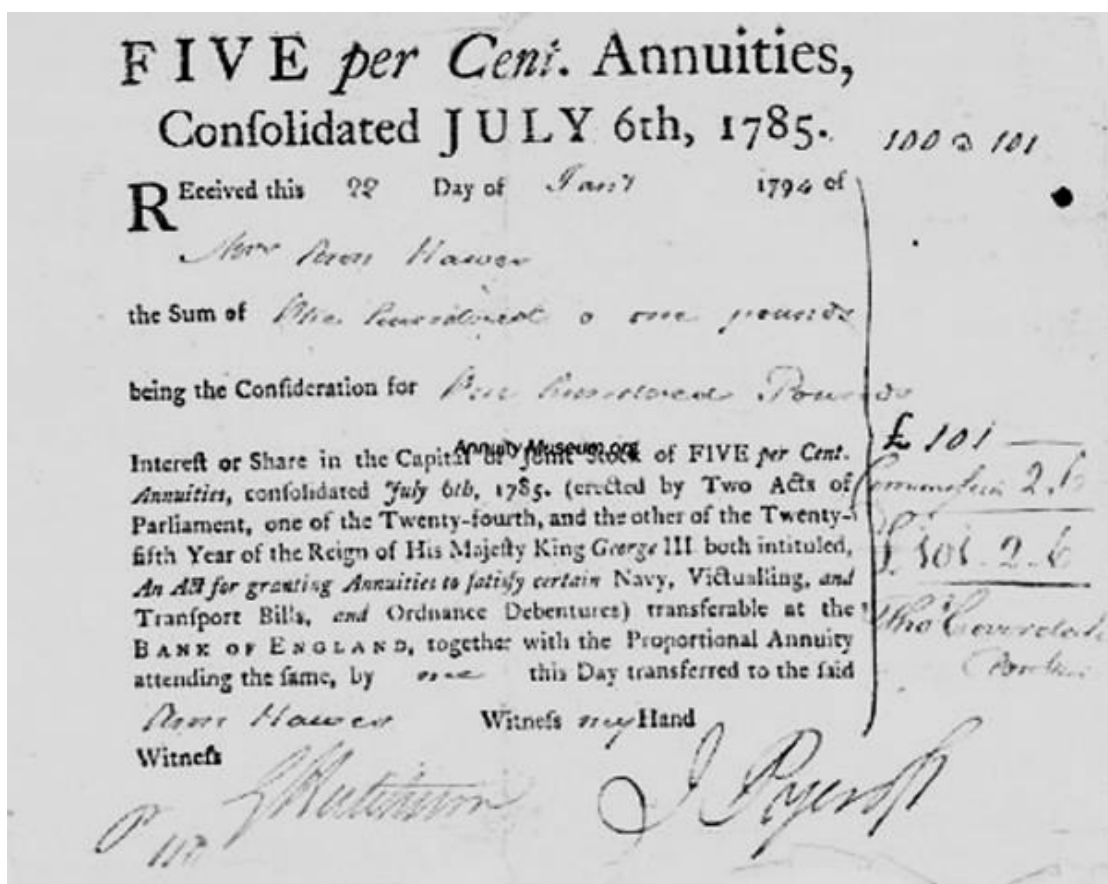 FIVE per Cent. Annuities,
Conſolidated JULY 6th, 1785.
100 a 101
REceived this 22 Day of Jany 1794 of
Mrs Ann Hawes
the Sum of One hundred & one pounds
being the Conſideration for One hundred Pounds
Annuity Museum.org
£ 101
Intereſt or Share in the Capital or Joint Stock of FIVE per Cent.
Annuities, conſolidated July 6th, 1785. (erected by Two Acts of
Commiſsion 2.6
Parliament, one of the Twenty-fourth, and the other of the Twenty-
fifth Year of the Reign of His Majeſty King George III both intituled,
£ 101-2-6
An Act for granting Annuities to ſatisfy certain Navy, Victualling, and
Tranſport Bills, and Ordnance Debentures) transferable at the
Tho Coverdale
BANK OF ENGLAND, together with the Proportional Annuity
attending the ſame, by me this Day transferred to the ſaid
Ann Hawes Witneſs my Hand
Witneſs